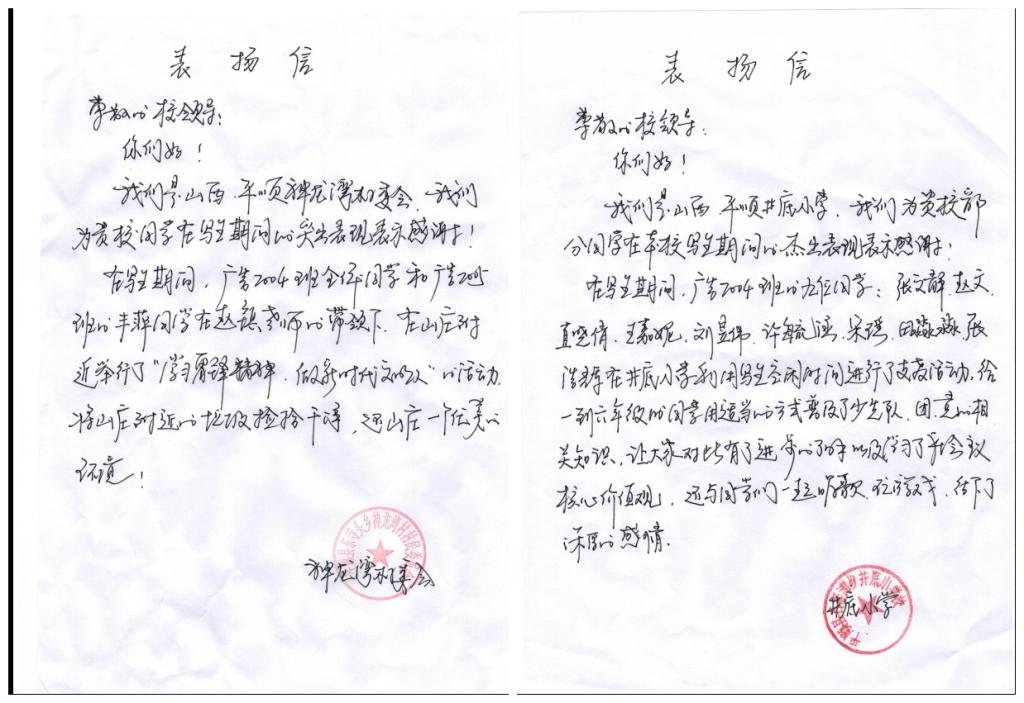 表扬信
尊敬的校领导：
你们好！
我们是山西平顺神龙湾村委会，我们
为贵校同学在写生期间的突出表现表示感谢！
在写生期间，广告2004班全体同学和广告2005
班的 同学在赵 老师的带领下，在山庄附
近举行了“学习雷锋精神，做新时代文明人”的活动，
将山庄附近的垃圾捡拾干净，还山庄一个优美的
环境！
神龙湾村委会
表扬信
尊敬的校领导：
你们好！
我们是山西平顺井底小学，我们为贵校部
分同学在本校写生期间的杰出表现表示感谢！
在写生期间，广告2004班的九位同学：张文静、赵文、
晓倩、王嘉妮、刘昱伟、许 、宋瑶、田淼淼、张
在井底小学利用写生空闲时间进行了支教活动，给
一到六年级的同学用适当的方式普及了少先队、团、党的相
关知识，让大家对此有了进步的了解以及学习了社会主义
核心价值观，还与同学们一起唱歌、玩游戏，结下了
深厚的感情。
井底小学